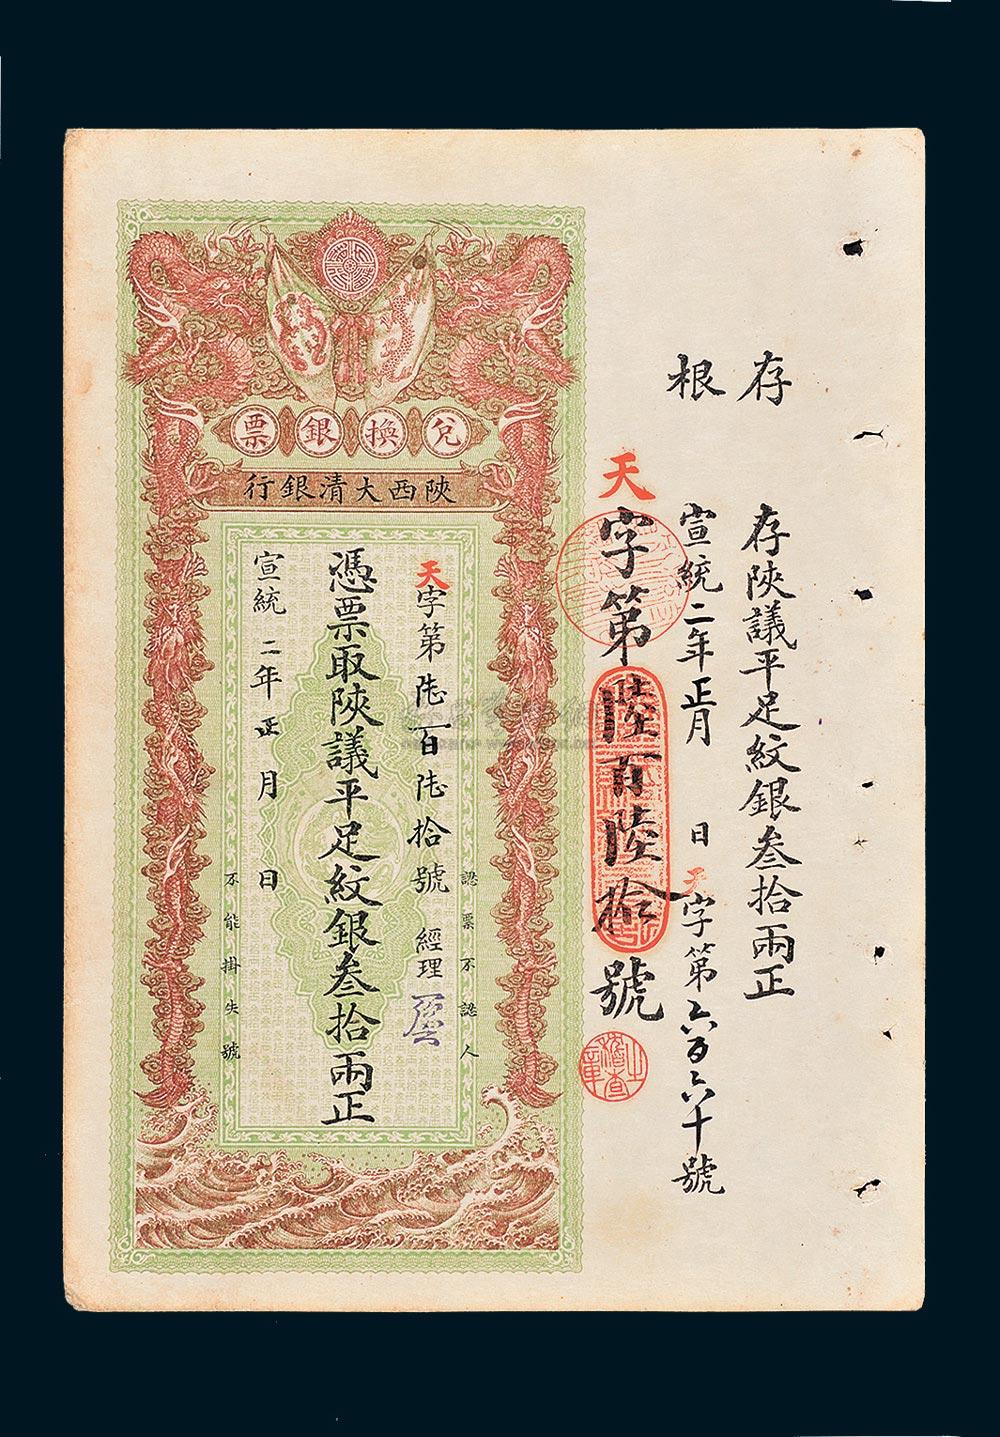 存根
存陝議平足紋銀叁拾兩正
宣統二年正月 日 天字第六百六十號
天字第陸百陸拾號
兌換銀票
陝西大清銀行
認票不認人
天字第陸百陸拾號 經理
憑票取陝議平足紋銀叁拾兩正
宣統二年正月日
不能掛失號